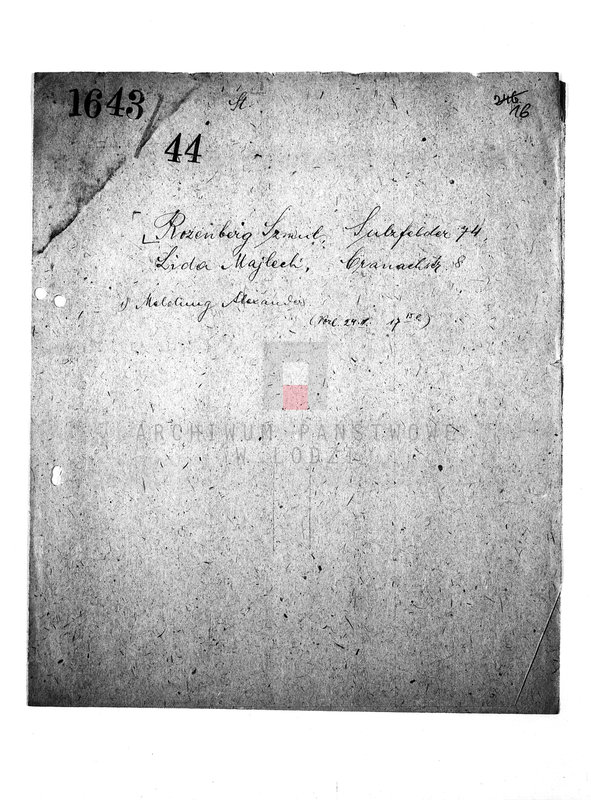 1643/
44
St.
246
16
Rozenberg Szmul, Sulzfelder 74,
Lida Majlech, Cranachstr. 8
1) Meldung Alexander
24.I. 17
ARCHIWUM PAŃSTWOWE
W ŁODZI